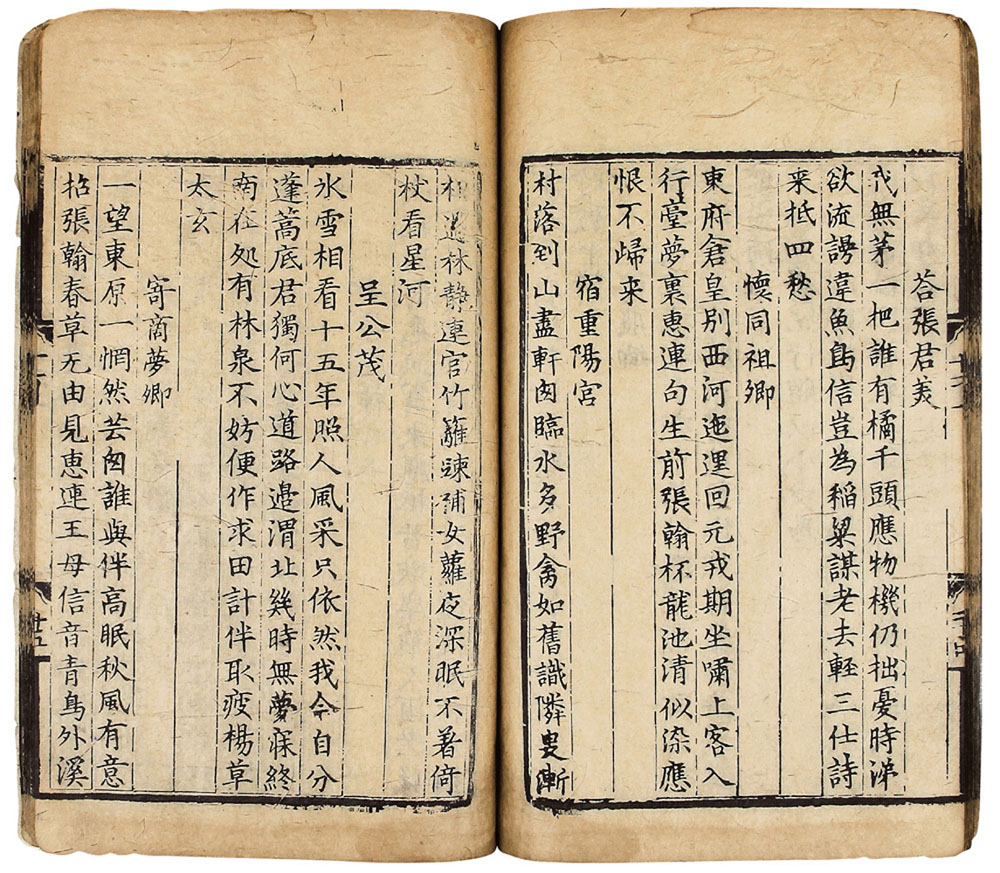 荅張君美
我無茅一把誰有橘千頭應物機仍拙憂時涕
欲流謗違魚鳥信豈為稲粱謀老去輕三仕詩
来抵四愁
懷同祖卿
東府倉皇別西河迤逦回元戎期坐嘯上客入
行臺夢裏惠連句生前張翰杯龍池清似染應
恨不歸来
宿重陽宫
村落到山盡軒囱臨水多野禽如舊識隣叟漸
相過林静連官竹籬疎補女蘿夜深眠不着倚
杖看星河
呈公茂
氷雪相看十五年照人風采只依然我今自分
蓬蒿底君獨何心道路邉渭北幾時無夢寐終
南在処有林泉不妨便作求田計伴取疲楊草
太玄
寄商夢卿
一望東原一惘然芸囱誰與伴高眠秋風有意
招張翰春草无由見恵連王母信音青鳥外溪